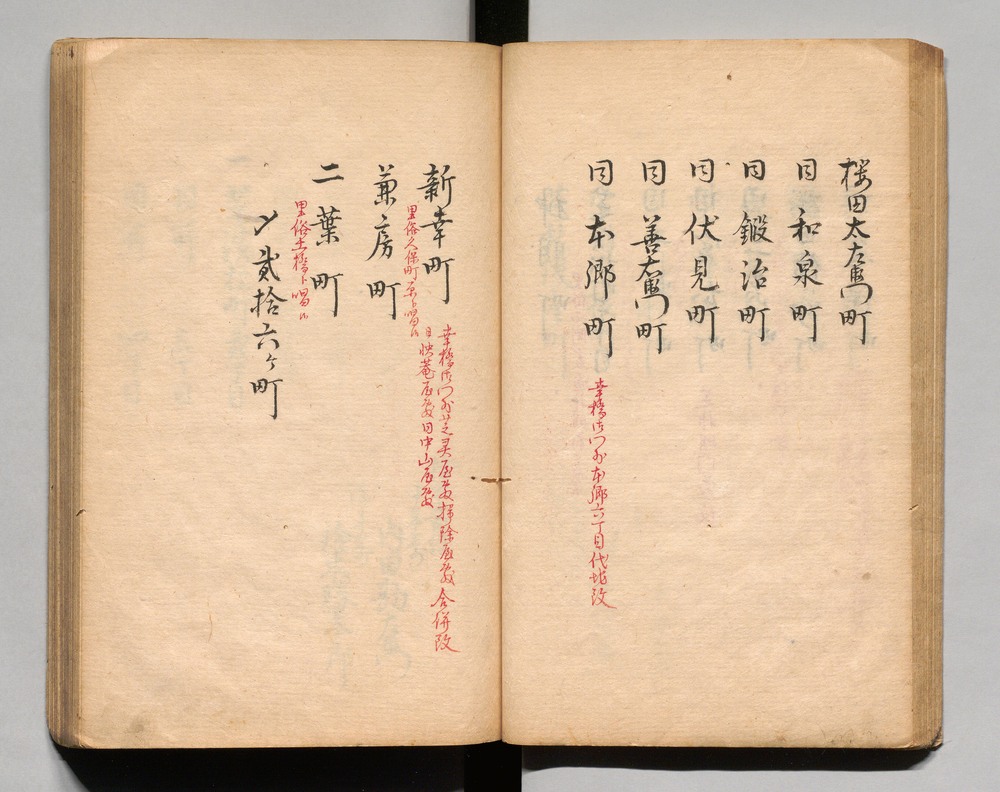 桜田太左衛門町
同 和泉町
同 鍛冶町
同 伏見町
同 善右衛門町
同 本郷町
幸橋御門外本郷六丁目代地改
新幸町
幸橋御門外芝具屋敷掃除屋敷合併改
同 映菴屋敷同中山屋敷
里俗久保町原ト唱ル
兼房町
二葉町
里俗土橋ト唱ル
〆貳拾六ケ町